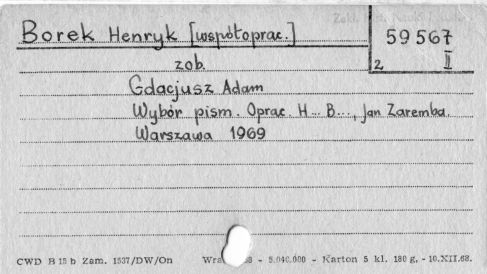 Borek Henryk [współoprac.]
59 567
z II
zob.
Gdacjusz Adam
Wybór pism. Oprac. H... B..., Jan Zaremba.
Warszawa 1969
CWD B 15 b Zam. 1537/DW/On - 5.040.000 - Karton 5 kl. 180 g, - 10.XII.68.